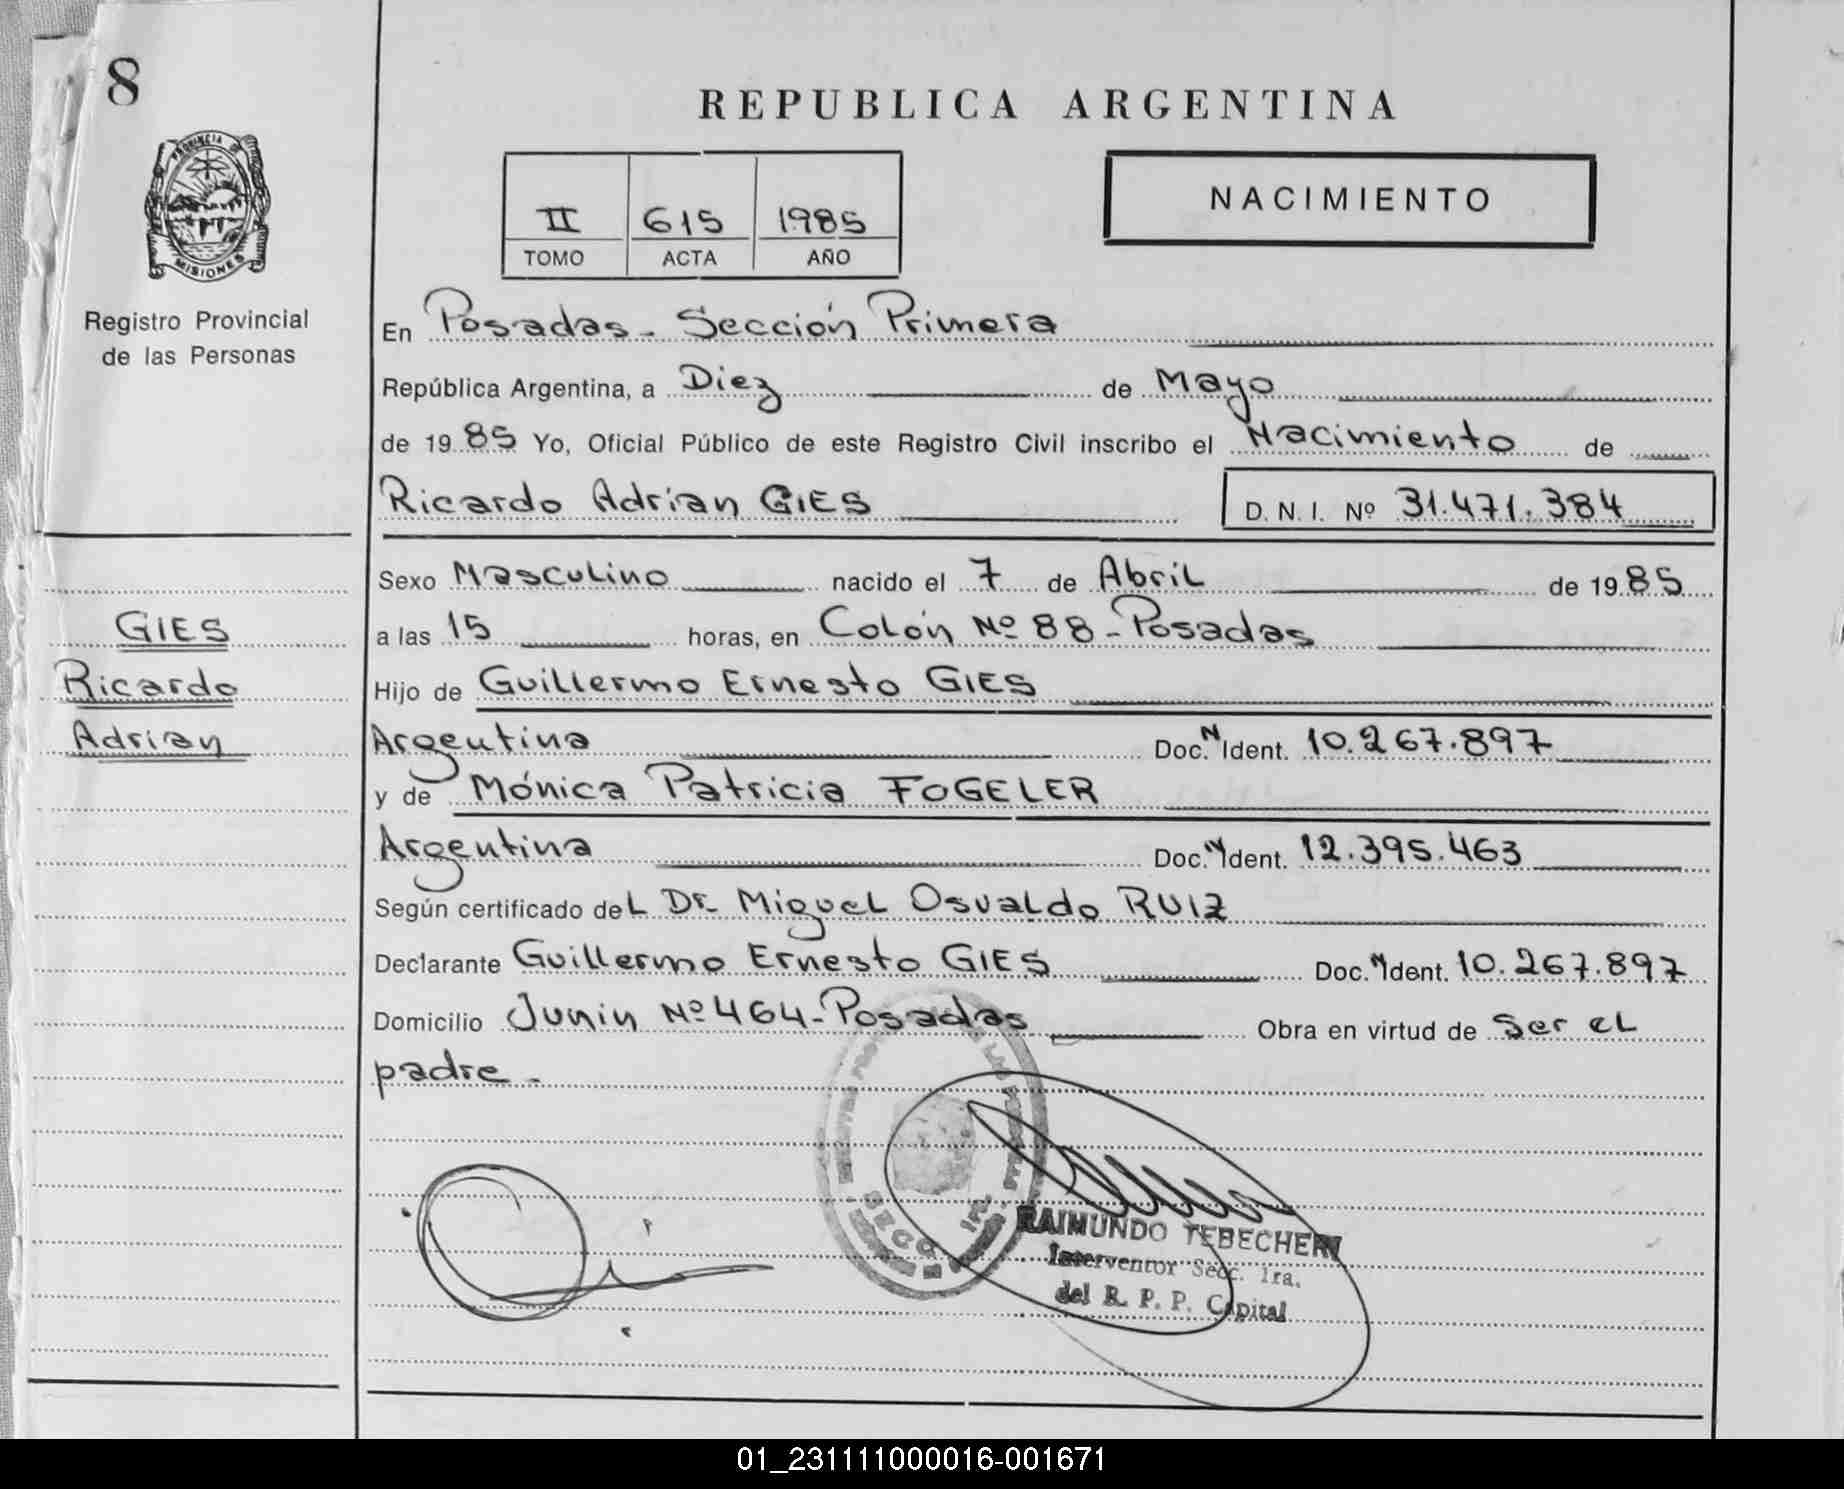 8
REPUBLICA ARGENTINA
PROVINCIA DE
MISIONES
Registro Provincial
de las Personas
II 615 1985
TOMO ACTA AÑO
NACIMIENTO
En Posadas - Sección Primera
República Argentina, a Diez de Mayo
de 1985 Yo, Oficial Público de este Registro Civil inscribo el Nacimiento de
Ricardo Adrian GIES D. N. I. Nº 31.471.384
Sexo Masculino nacido el 7 de Abril de 1985
GIES
Ricardo
Adrian
a las 15 horas, en Colón Nº 88 - Posadas
Hijo de Guillermo Ernesto GIES
Argentina Doc. N Ident. 10.267.897
y de Mónica Patricia FOGELER
Argentina Doc. N Ident. 12.395.463
Según certificado del Dr. Miguel Osvaldo RUIZ
Declarante Guillermo Ernesto GIES Doc. N Ident. 10.267.897
Domicilio Junin Nº 464 - Posadas Obra en virtud de Ser el
padre -
SECC 1RA
RAIMUNDO TEBECHERI
Interventor Secc. 1ra.
del R. P. P. Capital
01_231111000016-001671